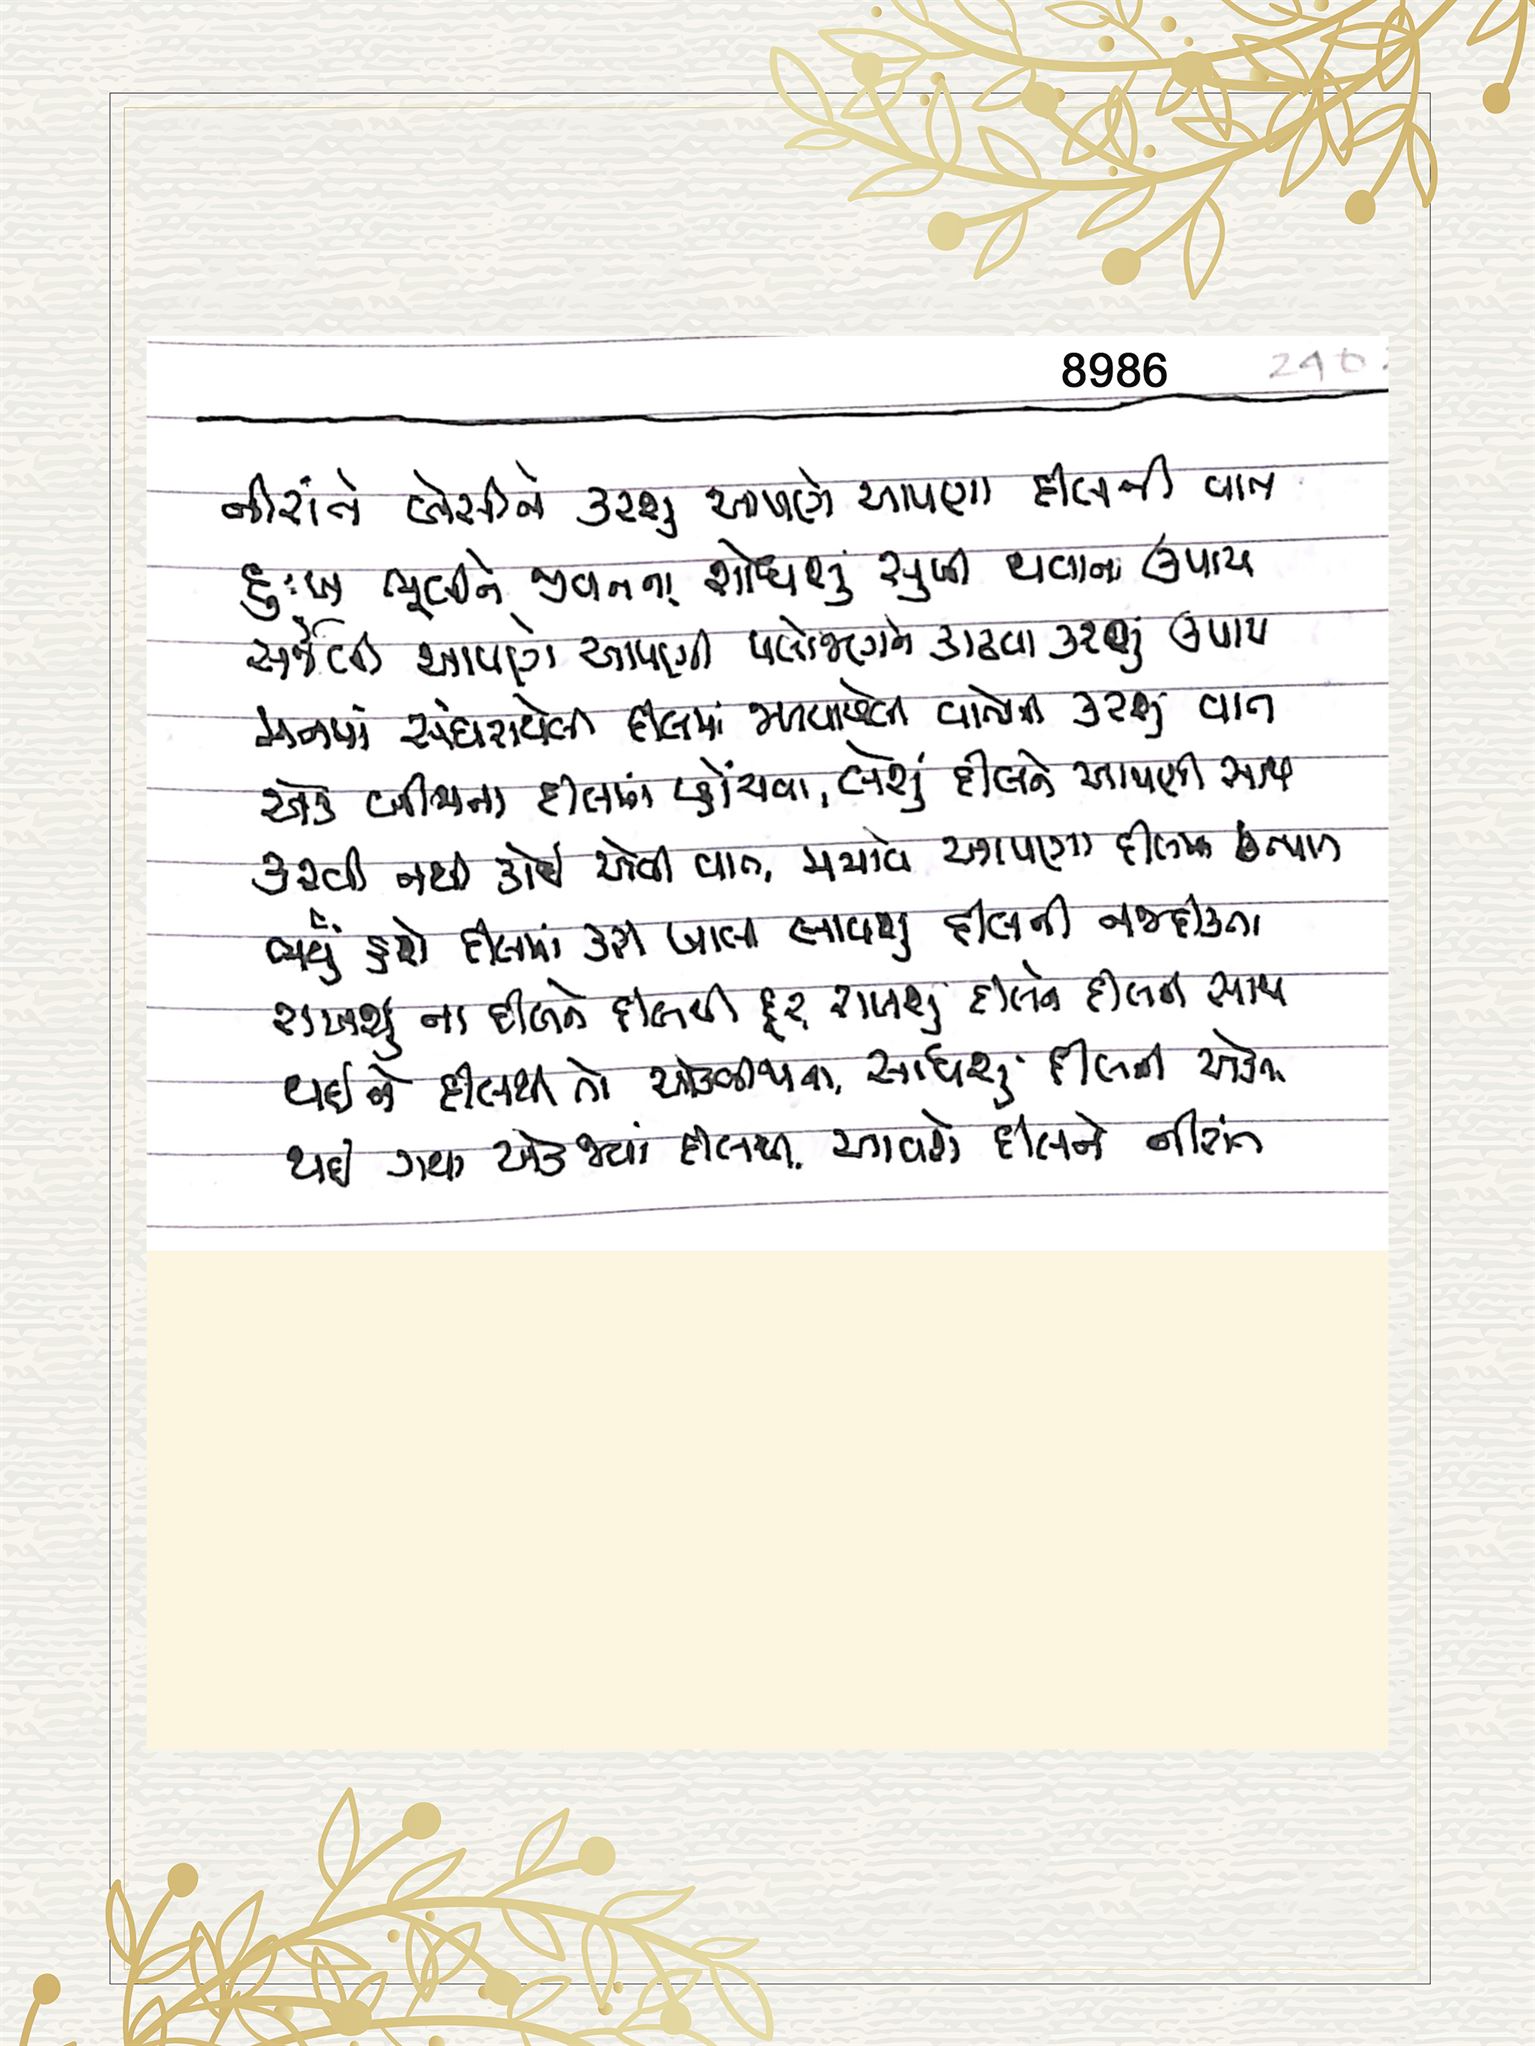 8986
નીરાંતે બેસીને કરશું આપણે આપણા દીલની વાત
દુઃખ ભૂલીને જીવનના શોધશું સુખી થવાના ઉપાય
સર્જેલી આપણે આપણી પલોજણને કાઢવા કરશું ઉપાય
મનમાં સંઘરાયેલી દીલમાં વાતોની કરશું વાત
એક બીજાના દીલમાં પ્હોંચવા, લેશું દીલને આપણી સાથ
કરવી નથી કોઈ એવી વાત, મચાવે આપણા દીલમાં ઉત્પાત
દીલમાં કરી ખાલી લાવશું દીલની નજદીકતા
રાખશું ના દીલને દીલથી દૂર, રાખશું દીલને દીલની સાથ
થઈને દીલથી તો એકબીજાના, સાધશું દીલની એકતા
થઈ ગયા એક જ્યાં દીલથી, આવશે દીલને નીરાંત